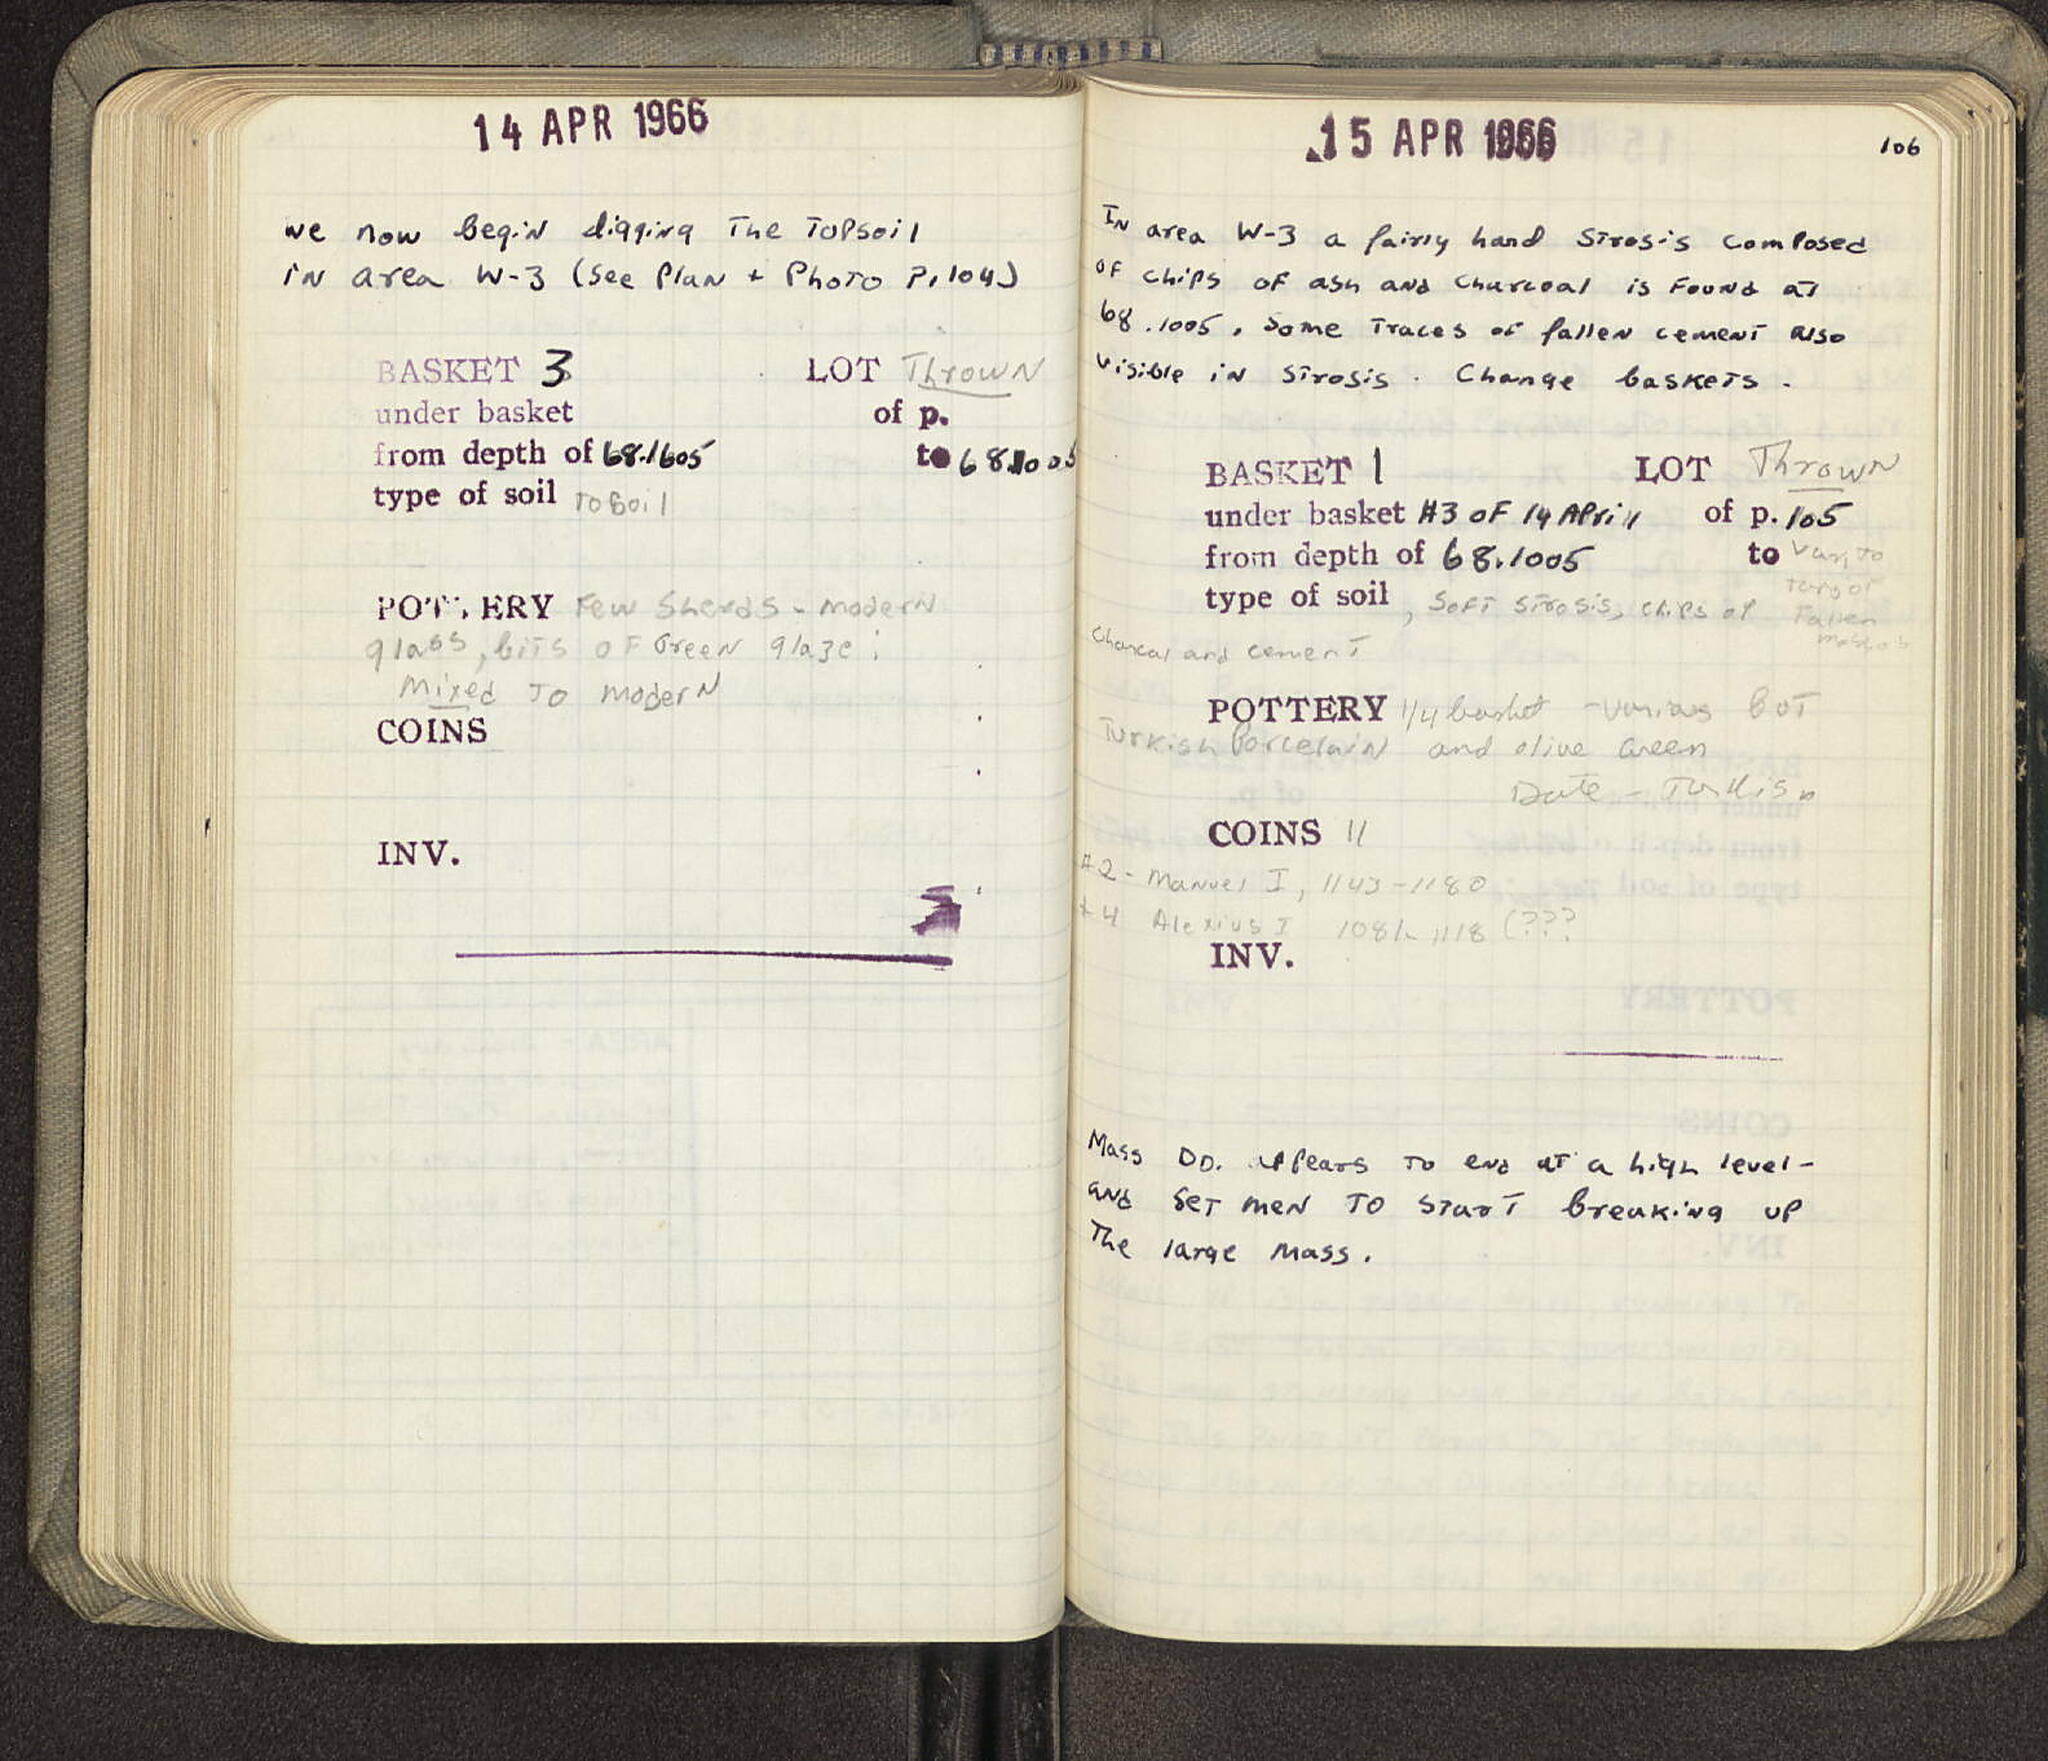 14 APR 1966
we now begin digging The Topsoil
in area W-3 (See Plan + Photo P. 104)
BASKET 3 LOT Thrown
under basket of p.
from depth of 68.1605 to 68.1005
type of soil Tosoil
POTTERY Few Sherds - modern
glass, bits of Green glaze;
Mixed To modern
COINS
INV.
15 APR 1966
106
In area W-3 a fairly hard Strosis composed
of chips of ash and charcoal is found at
68.1005. Some Traces of fallen cement also
visible in Strosis. Change baskets.
BASKET 1 LOT Thrown
under basket #3 of 14 April of p. 105
from depth of 68.1005 to Var. to
top of
type of soil, Soft strosis, chips of Fallen
Charcoal and cement
POTTERY 1/4 basket - various but
Turkish Porcelain and olive Green
Date - Turkish
COINS 11
#2 - Manuel I, 1143-1180
#4 Alexius I 1081-1118 (???
INV.
Mass DD. appears to end at a high level-
and set men to start breaking up
The large mass.